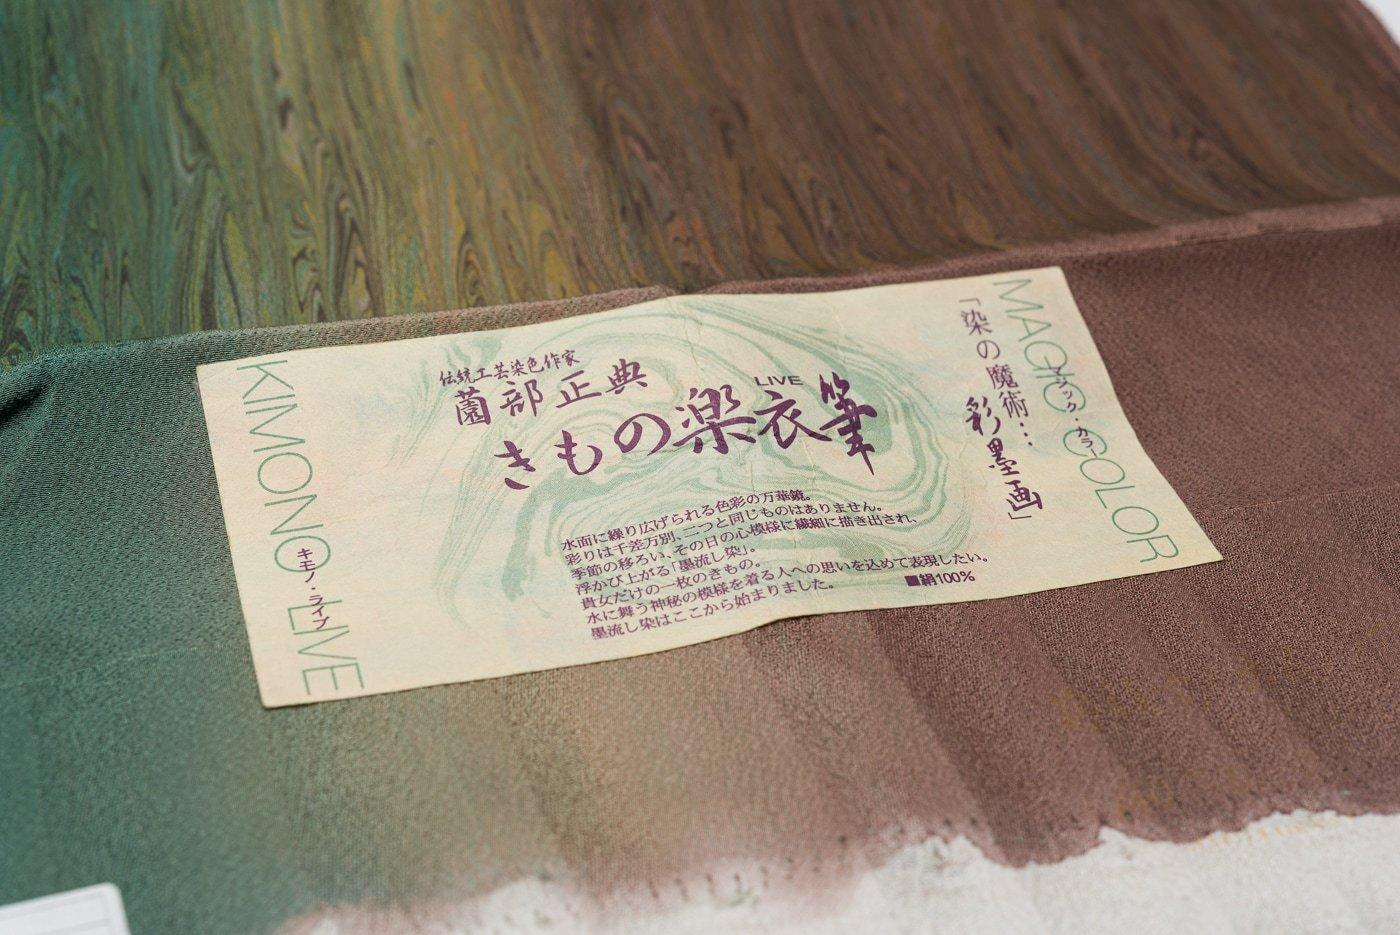 KIMONO LIVE
キモノ・ライブ
伝統工芸染色作家
薗部正典
LIVE
きもの楽衣筆
水面に繰り広げられる色彩の万華鏡。
彩りは千差万別、二つと同じものはありません。
季節の移ろい、その日の心模様に繊細に描き出され、
浮かび上がる「墨流し染」。
貴女だけの一枚のきもの。
水に舞う神秘の模様を着る人への思いを込めて表現したい。
墨流し染はここから始まりました。
■絹100%
「染の魔術…
彩墨画」
MAGIC COLOR
マジック・カラー